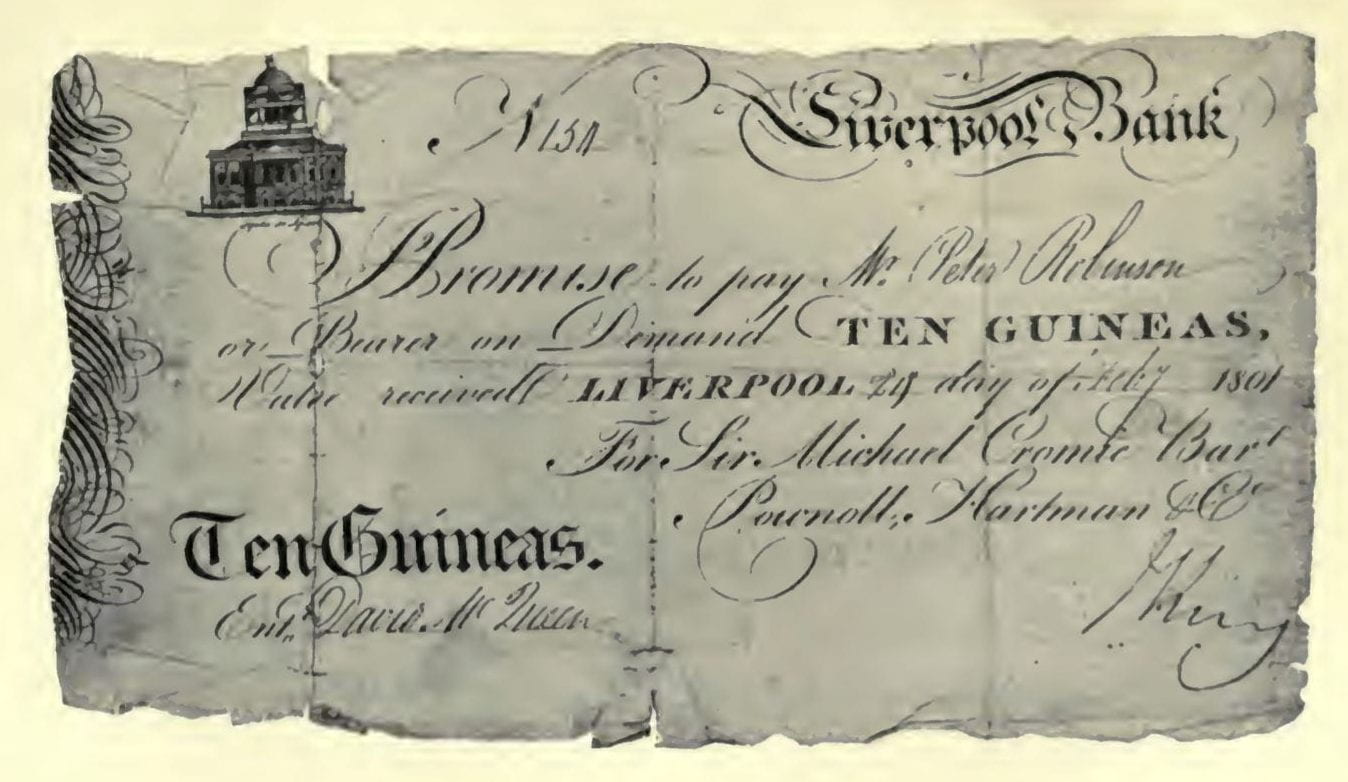 Liverpool Bank
I Promise to pay Mr. Peter Robinson
or Bearer on Demand TEN GUINEAS,
Value received LIVERPOOL 24 day of Feby 1801
For Sir Michael Cromie Bart
Pownoll, Hartman & Co
Ten Guineas.
Entd. David McQueen